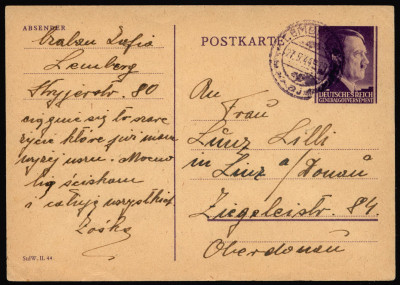 ABSENDER
Zofia
Lemberg
Stryjerstr. 80
ciągnie się to szare
życie które już mam
wyżej uszu. Mocno
Cię ściskam
i całuję wszystkich
Zośka
POSTKARTE
DEUTSCHES REICH
GENERALGOUVERNEMENT
An
Frau
Lunz Lilli
in Linz a/Donau
Ziegeleistr. 84.
Oberdonau
StdW. II. 44.